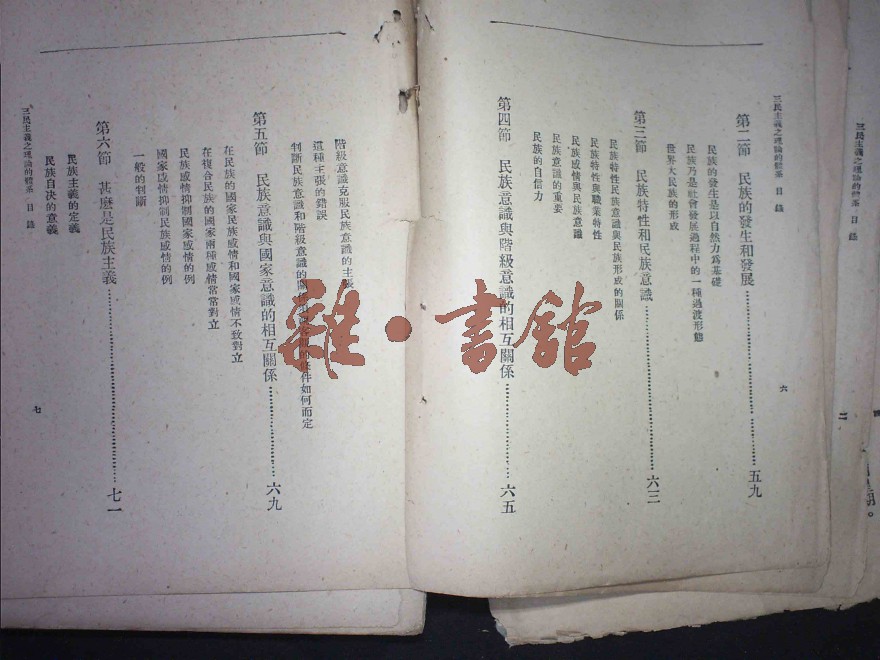 三民主義之理論的體系 目錄
六
第二節 民族的發生和發展……五九
民族的發生是以自然力為基礎
民族乃是社會發展過程中的一種過渡形態
世界大民族的形成
第三節 民族特性和民族意識……六三
民族特性民族意識與民族形成的關係
民族特性與職業特性
民族感情與民族意識
民族意識的重要
民族的自信力
第四節 民族意識與階級意識的相互關係……六五
階級意識克服民族意識的主張
這種主張的錯誤
判斷民族意識和階級意識的關係
件如何而定
第五節 民族意識與國家意識的相互關係……六九
在民族的國家民族感情和國家感情不致對立
在複合民族的國家兩種感情常常對立
民族感情抑制國家感情的例
國家感情抑制民族感情的例
一般的判斷
第六節 甚麼是民族主義……七一
民族主義的定義
民族自決的意義
三民主義之理論的體系 目錄
七
三民主義之理論的體系 目錄
雜·書館